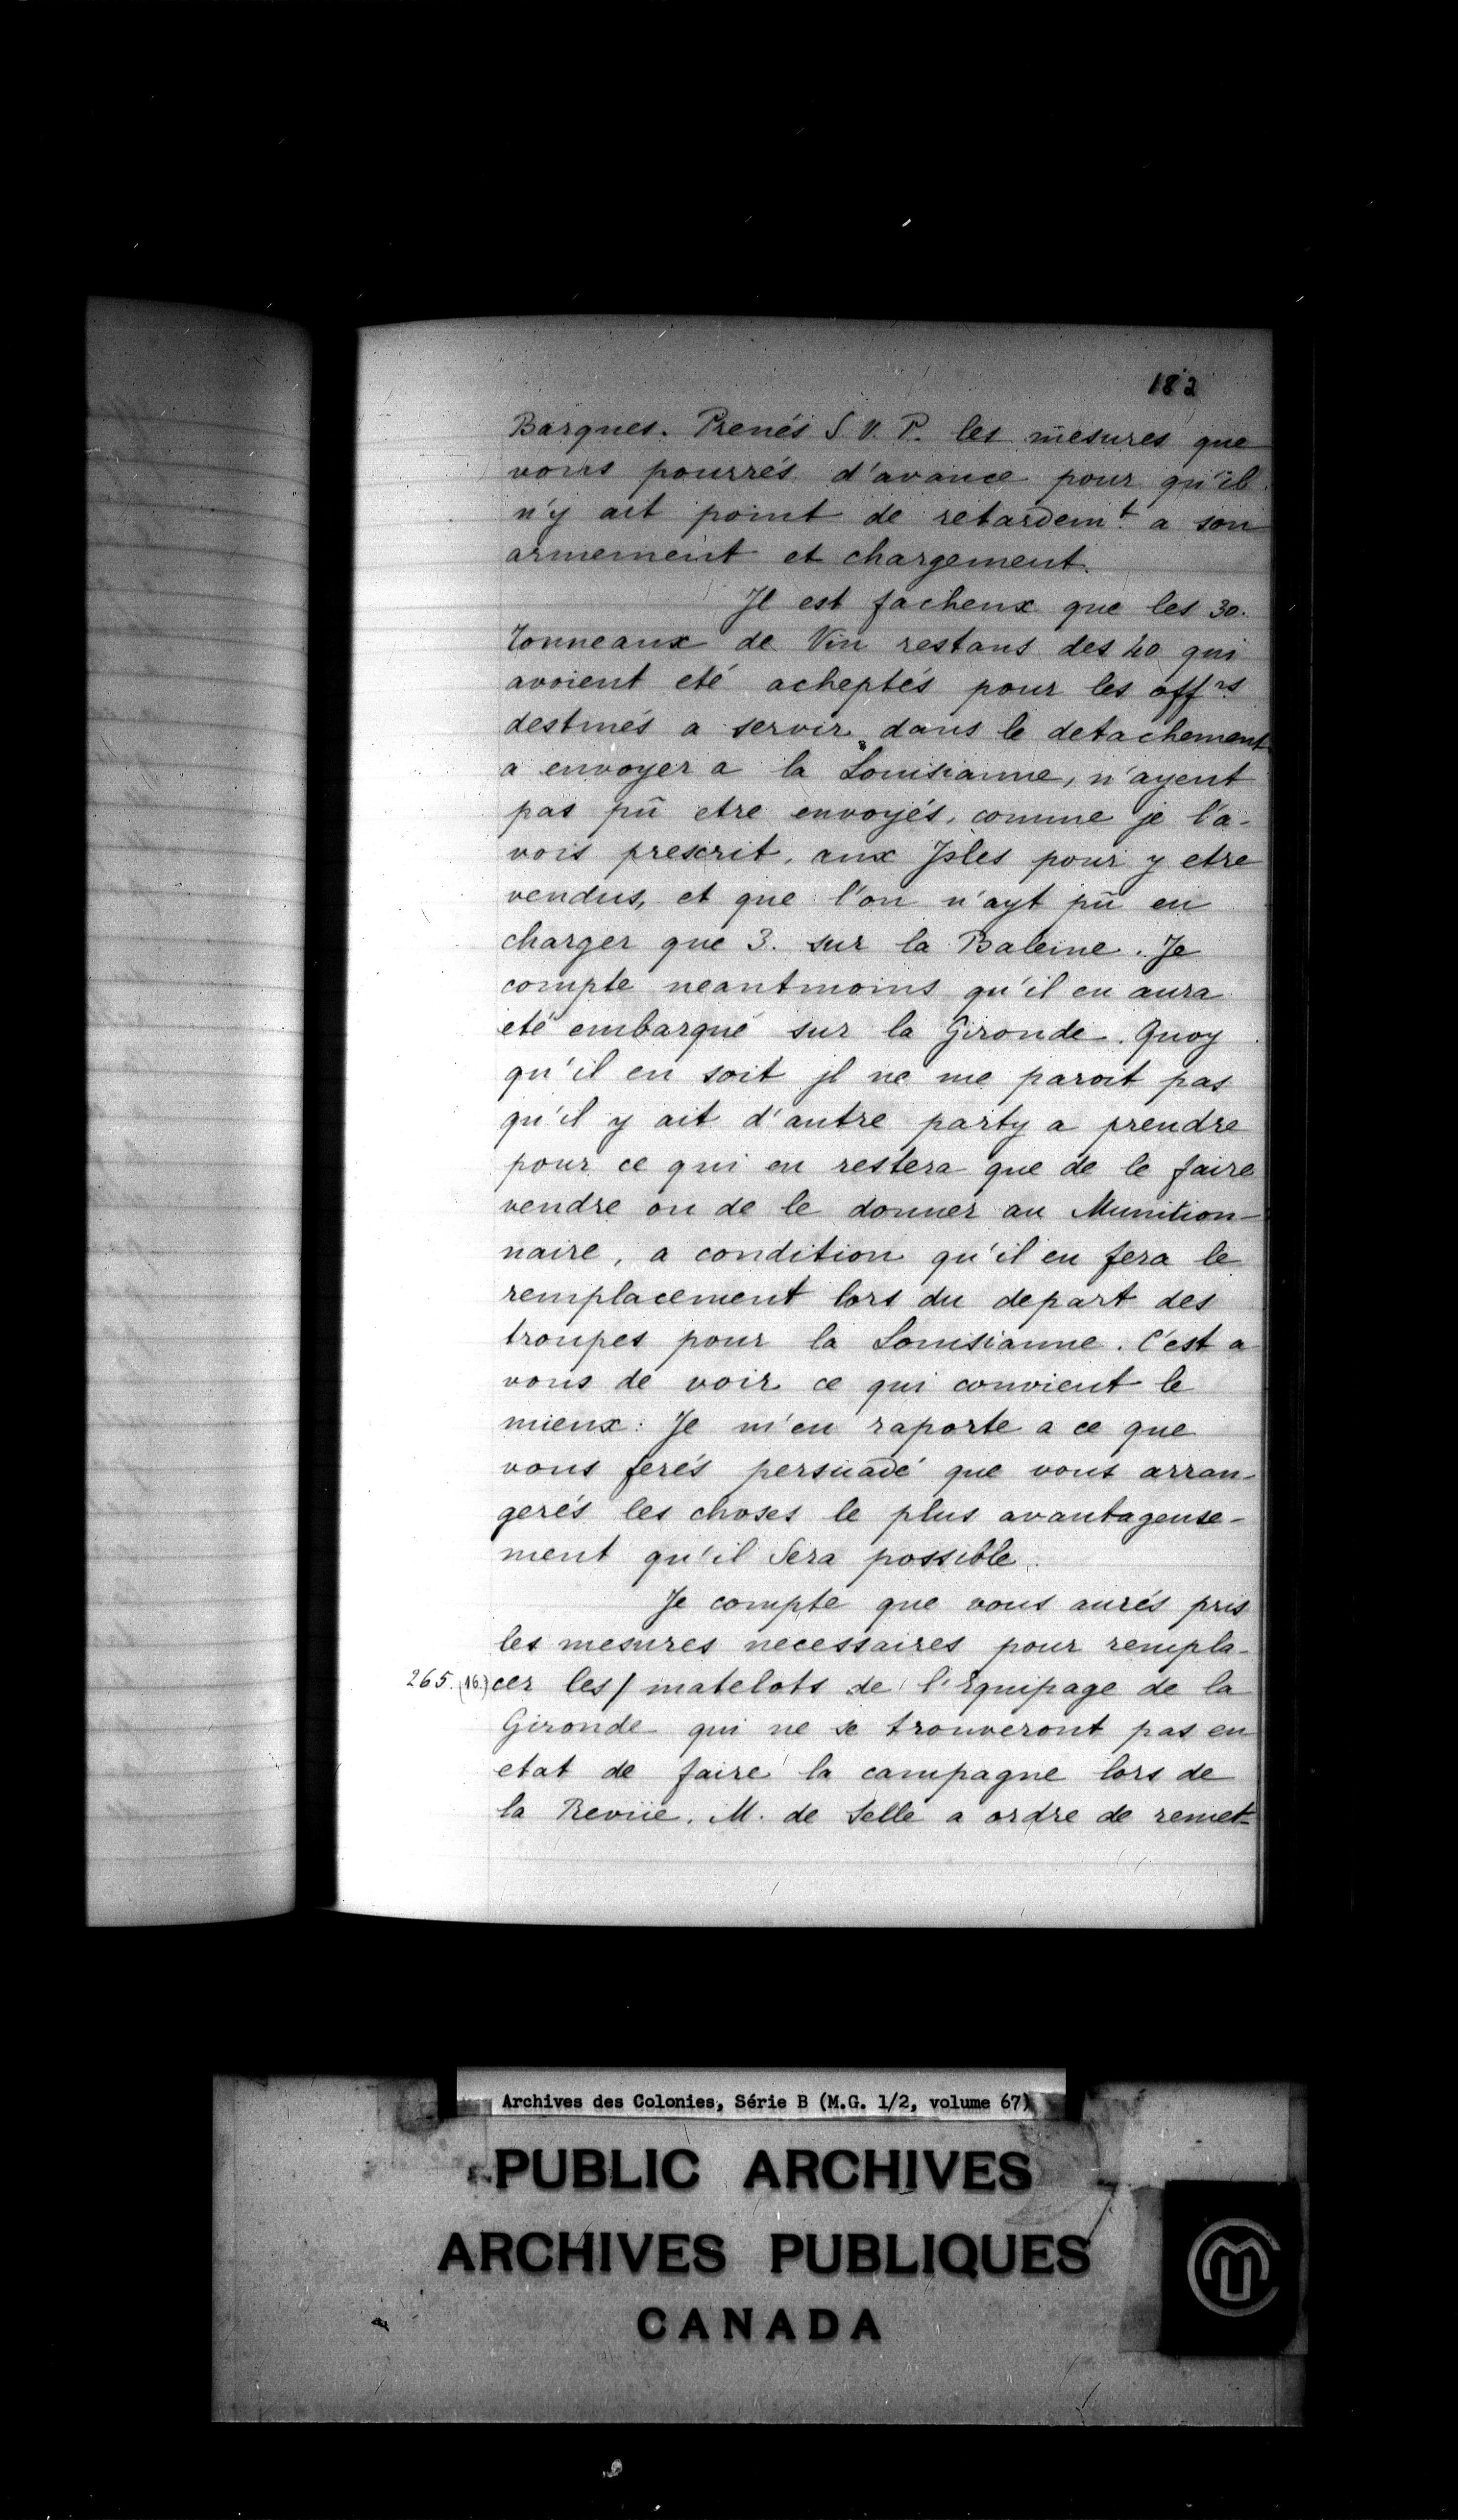 182
Barques. Prenés S. V. P. les mesures que
vous pourrés d'avance pour qu'il
n'y ait point de retardem.t a son
armement et chargement.
Jl est facheux que les 30.
Tonneaux de Vin restans des 40 qui
avoient eté acheptés pour les off.rs
destinés a servir dans le detachement
a envoyer a la Louisianne, n'ayent
pas pû etre envoyés, comme je l'a-
vois prescrit, aux Jsles pour y etre
vendus, et que l'on n'ayt pû en
charger que 3. sur la Baleine. Je
compte neantmoins qu'il en aura
eté embarqué sur la Gironde. Quoy
qu'il en soit jl ne me paroit pas
qu'il y ait d'autre party a prendre
pour ce qui en restera que de le faire
vendre ou de le donner au Munition-
naire, a condition qu'il en fera le
remplacement lors du depart des
troupes pour la Louisianne. C'est a
vous de voir ce qui convient le
mieux: Je m'en raporte a ce que
vous ferés persuadé que vous arran-
gerés les choses le plus avantageuse-
ment qu'il Sera possible.
Je compte que vous aurés pris
les mesures necessaires pour rempla-
265. (16.) cer les/ matelots de l'Equipage de la
Gironde qui ne se trouveront pas en
etat de faire la campagne lors de
la Reviie. M. de Selle a ordre de remet-
Archives des Colonies, Série B (M.G. 1/2, volume 67)
PUBLIC ARCHIVES
ARCHIVES PUBLIQUES
CANADA